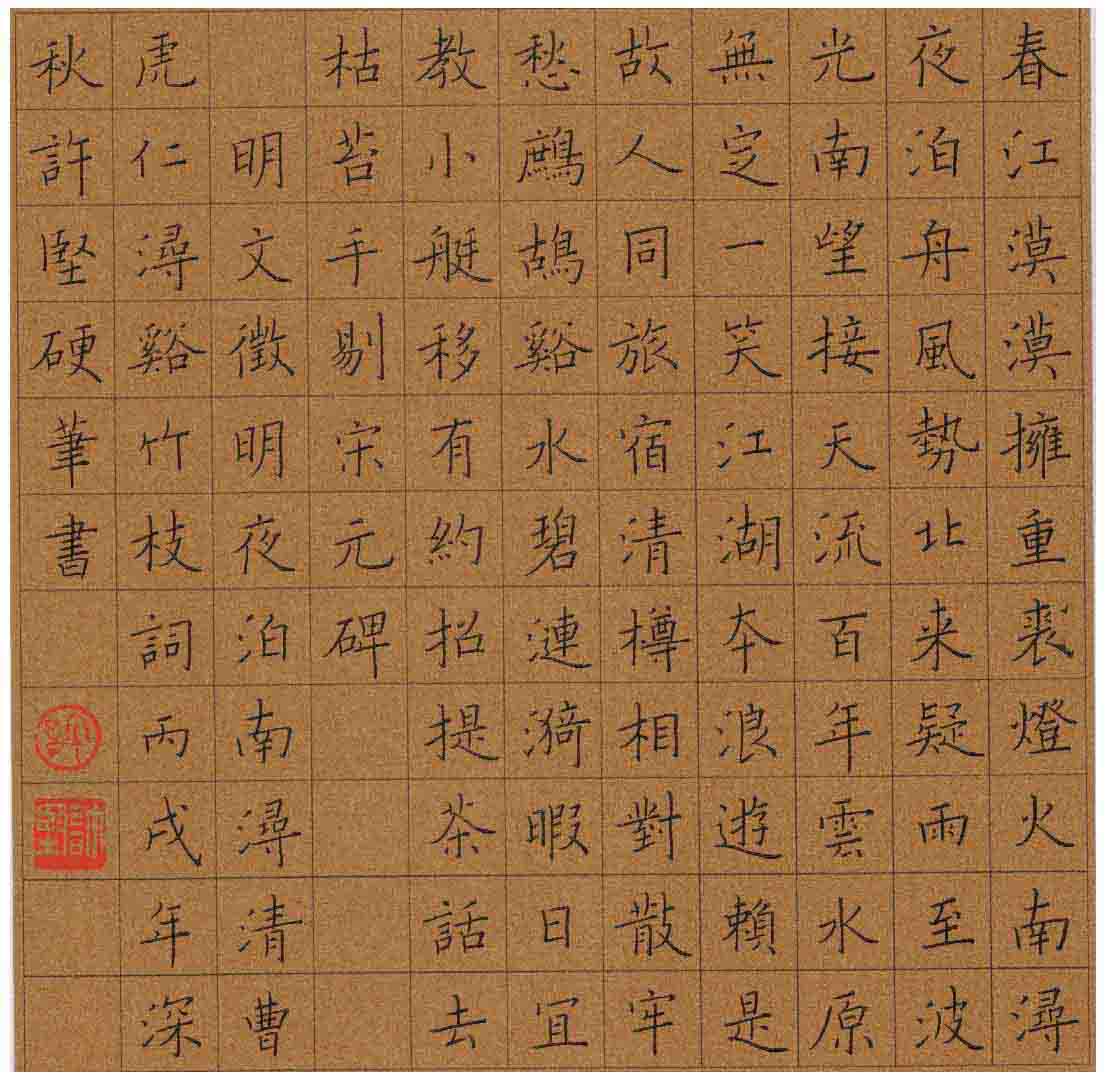 春江漠漠擁重裘燈火南潯
夜泊舟風勢北来疑雨至波
光南望接天流百年雲水原
無定一笑江湖本浪遊賴是
故人同旅宿清樽相對散牢
愁鷓鴣谿水碧漣漪暇日宜
教小艇移有約招提茶話去
枯苔手剔宋元碑
明文徵明夜泊南潯清曹
虎仁潯谿竹枝詞丙戌年深
秋許堅硬筆書